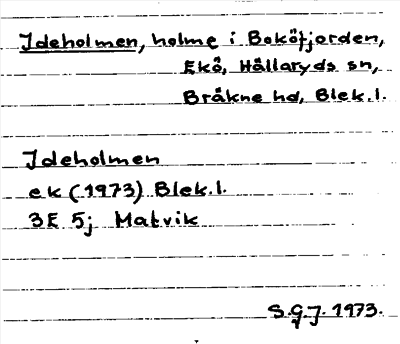 Ideholmen, holme i Boköfjorden,
Ekö, Hällaryds sn,
Bräkne hd, Blek.l.
Ideholmen
ek (1973) Blek.l.
3E 5j Matvik
S.G.J. 1973.